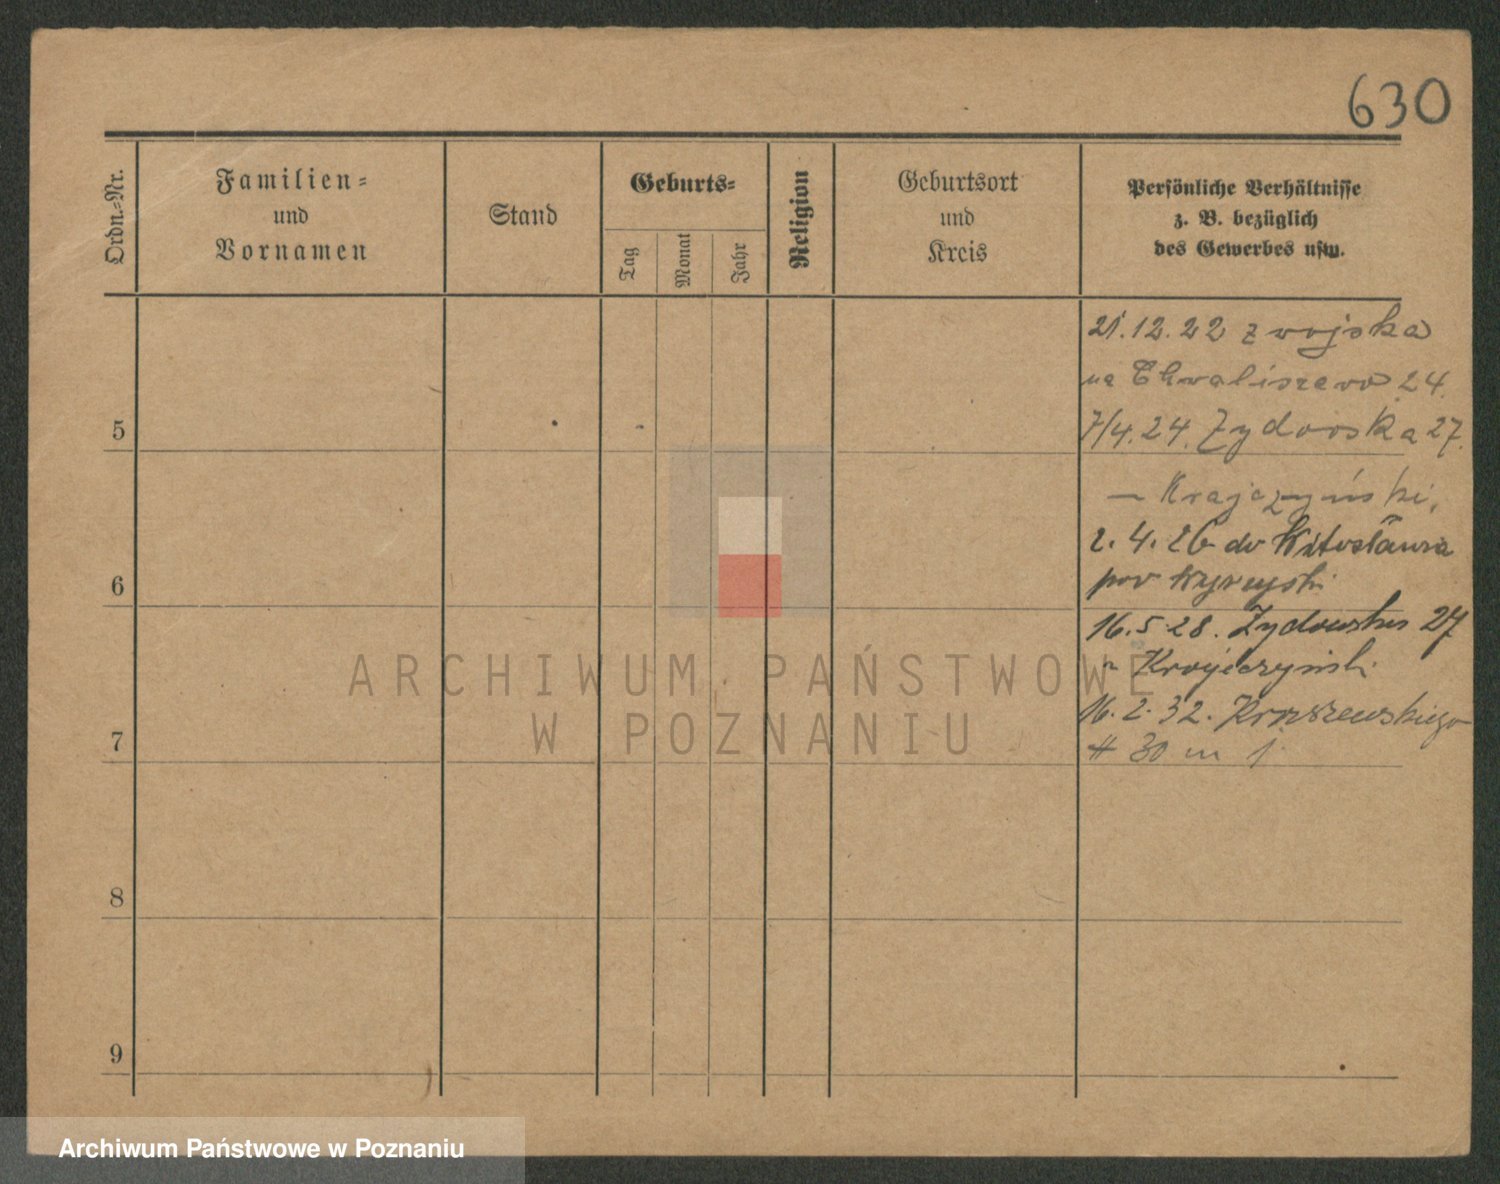 630
Ordn.-Nr.
Familien-
und
Vornamen
Stand
Geburts-
Tag
Monat
Jahr
Religion
Geburtsort
und
Kreis
Persönliche Verhältnisse
z. B. bezüglich
des Gewerbes usw.
21.12.22 z wojska
na Chwaliszewo 24.
7/4.24. Zydowska 27.
5
— Krajczyński,
2.4.26 do Witosławia
pow Wyrzyski
6
16.5.28. Zydowska 27
Krajczyński
16.2.32. Kraszewskiego
30 m 1
7
8
9
ARCHIWUM PAŃSTWOWE
W POZNANIU
Archiwum Państwowe w Poznaniu